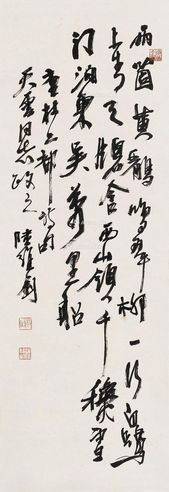 兩箇黃鸝鳴翠柳一行白鷺
上青天牕含西嶺千穐雪
門泊東吴萬里船
書杜工部
天雲同志政之 陸維釗